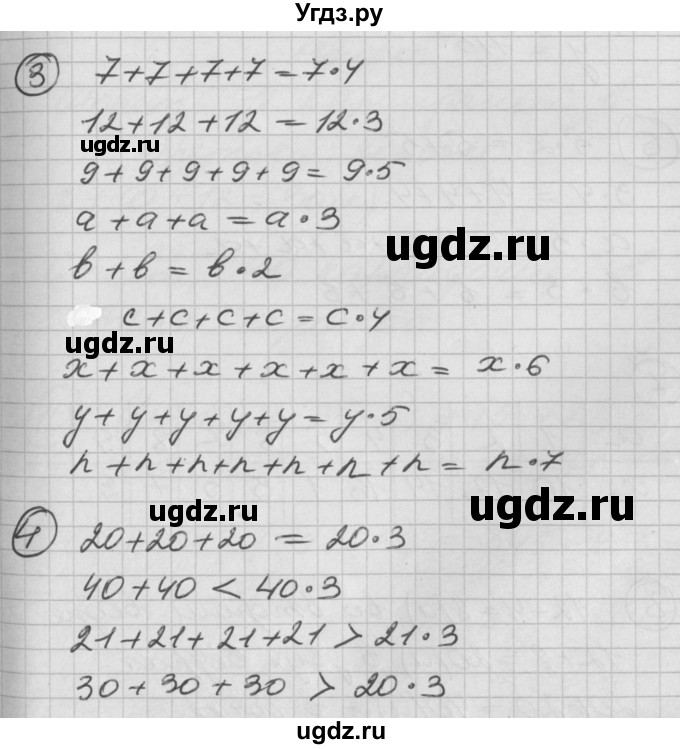 Угдз.ру
3 7+7+7+7=7·4
12+12+12=12·3
ugdz.ru
9+9+9+9+9=9·5
a+a+a=a·3
ugdz.ru
b+b=b·2
c+c+c+c=c·4
ugdz.ru
x+x+x+x+x+x=x·6
y+y+y+y+y=y·5
n+n+n+n+n+n+n=n·7
ugdz.ru
ugdz.ru
4 20+20+20=20·3
40+40<40·3
21+21+21+21>21·3
30+30+30>20·3
ugdz.ru